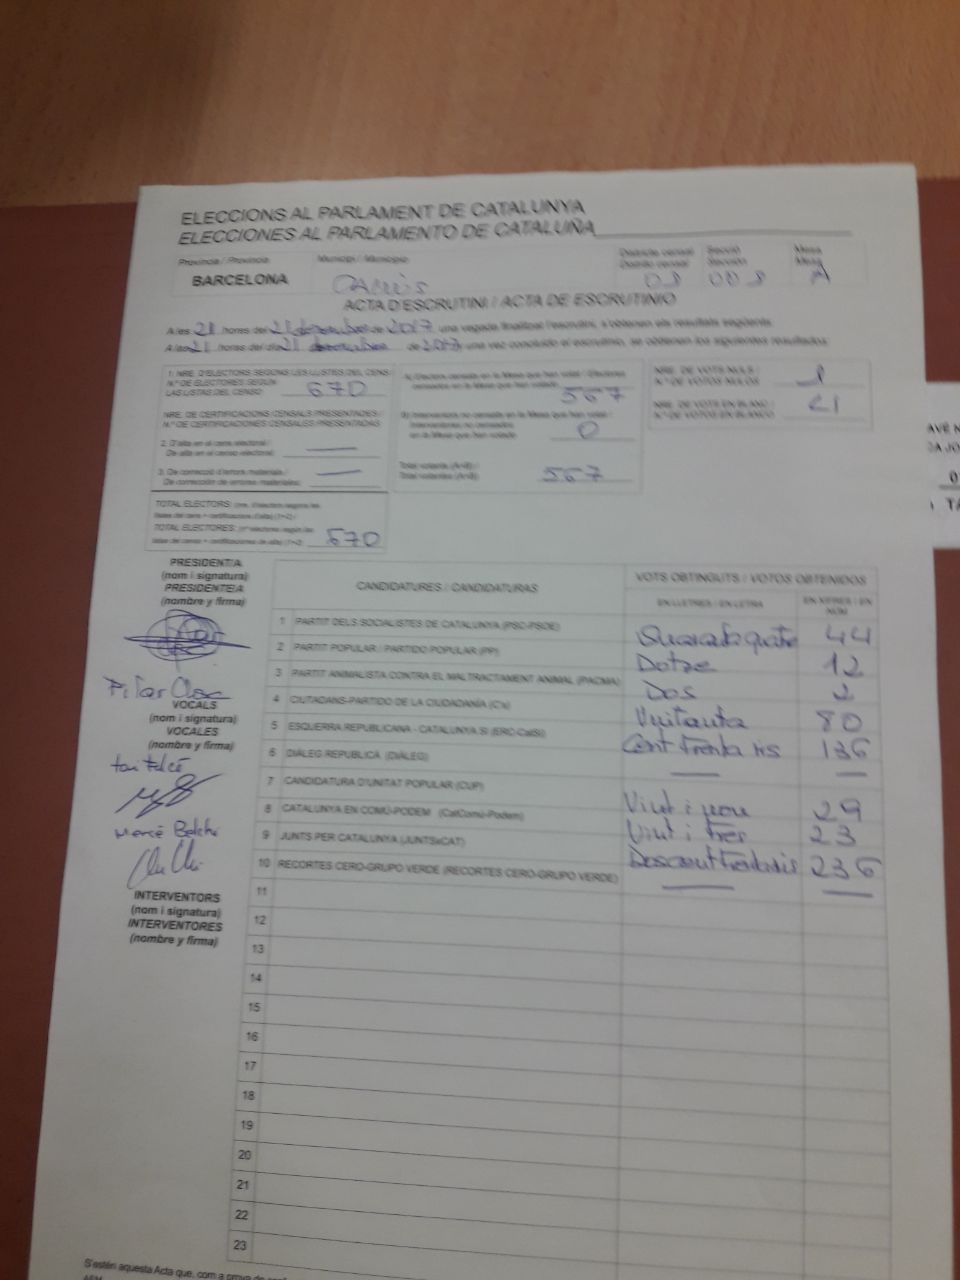 ELECCIONS AL PARLAMENT DE CATALUNYA
ELECCIONES AL PARLAMENTO DE CATALUÑA
Província / Provincia
Municipi / Municipio
Districte censal Secció Mesa
Distrito censal Sección Mesa
BARCELONA
03 008 A
ACTA D'ESCRUTINI / ACTA DE ESCRUTINIO
A les 21 hores del 21 desembre de 2017 una vegada finalitzat l'escrutini, s'obtenen els resultats següents:
A las 21 hores del día 21 de 2017, una vez concluido el escrutinio, se obtienen los siguientes resultados:
1/ NRE. D'ELECTORS SEGONS LES LLISTES DEL CENS
N.º DE ELECTORES SEGÚN
LAS LISTAS DEL CENSO 670
NRE. DE CERTIFICACIONS CENSALS PRESENTADES /
N.º DE CERTIFICACIONES CENSALES PRESENTADAS
2. D'alta en el cens electoral /
De alta en el censo electoral:
3. De correcció d'errors materials /
De corrección de errores materiales:
A) Electors censats en la Mesa que han votat / Electores
censados en la Mesa que han votado 567
B) Interventors no censats en la Mesa que han votat /
Interventores no censados
en la Mesa que han votado 0
Total votants (A+B) /
Total votantes (A+B) 567
NRE. DE VOTS NULS /
N.º DE VOTOS NULOS 1
NRE. DE VOTS EN BLANC /
N.º DE VOTOS EN BLANCO
TOTAL ELECTORS:
TOTAL ELECTORES:
670
PRESIDENT/A
(nom i signatura)
PRESIDENTE/A
(nombre y firma)
Pilar
VOCALS
(nom i signatura)
VOCALES
(nombre y firma)
Mercè
INTERVENTORS
(nom i signatura)
INTERVENTORES
(nombre y firma)
CANDIDATURES / CANDIDATURAS
VOTS OBTINGUTS / VOTOS OBTENIDOS
EN LLETRES / EN LETRA
EN XIFRES / EN NÚM
1 PARTIT DELS SOCIALISTES DE CATALUNYA (PSC-PSOE) Quaranta quatre 44
2 PARTIT POPULAR / PARTIDO POPULAR (PP) Dotze 12
3 PARTIT ANIMALISTA CONTRA EL MALTRACTAMENT ANIMAL (PACMA) Dos 2
4 CIUTADANS-PARTIDO DE LA CIUDADANÍA (C's) Vuitanta 80
5 ESQUERRA REPUBLICANA - CATALUNYA SÍ (ERC-CatSí) Cent trenta sis 136
6 DIÀLEG REPUBLICÀ (DIÀLEG)
7 CANDIDATURA D'UNITAT POPULAR (CUP) Vint i nou 29
8 CATALUNYA EN COMÚ-PODEM (CatComú-Podem) Vint i tres 23
9 JUNTS PER CATALUNYA (JUNTSxCAT) Doscent trentasis 236
10 RECORTES CERO-GRUPO VERDE (RECORTES CERO-GRUPO VERDE)
11
12
13
14
15
16
17
18
19
20
21
22
23
S'estén aquesta Acta que, com a prova de